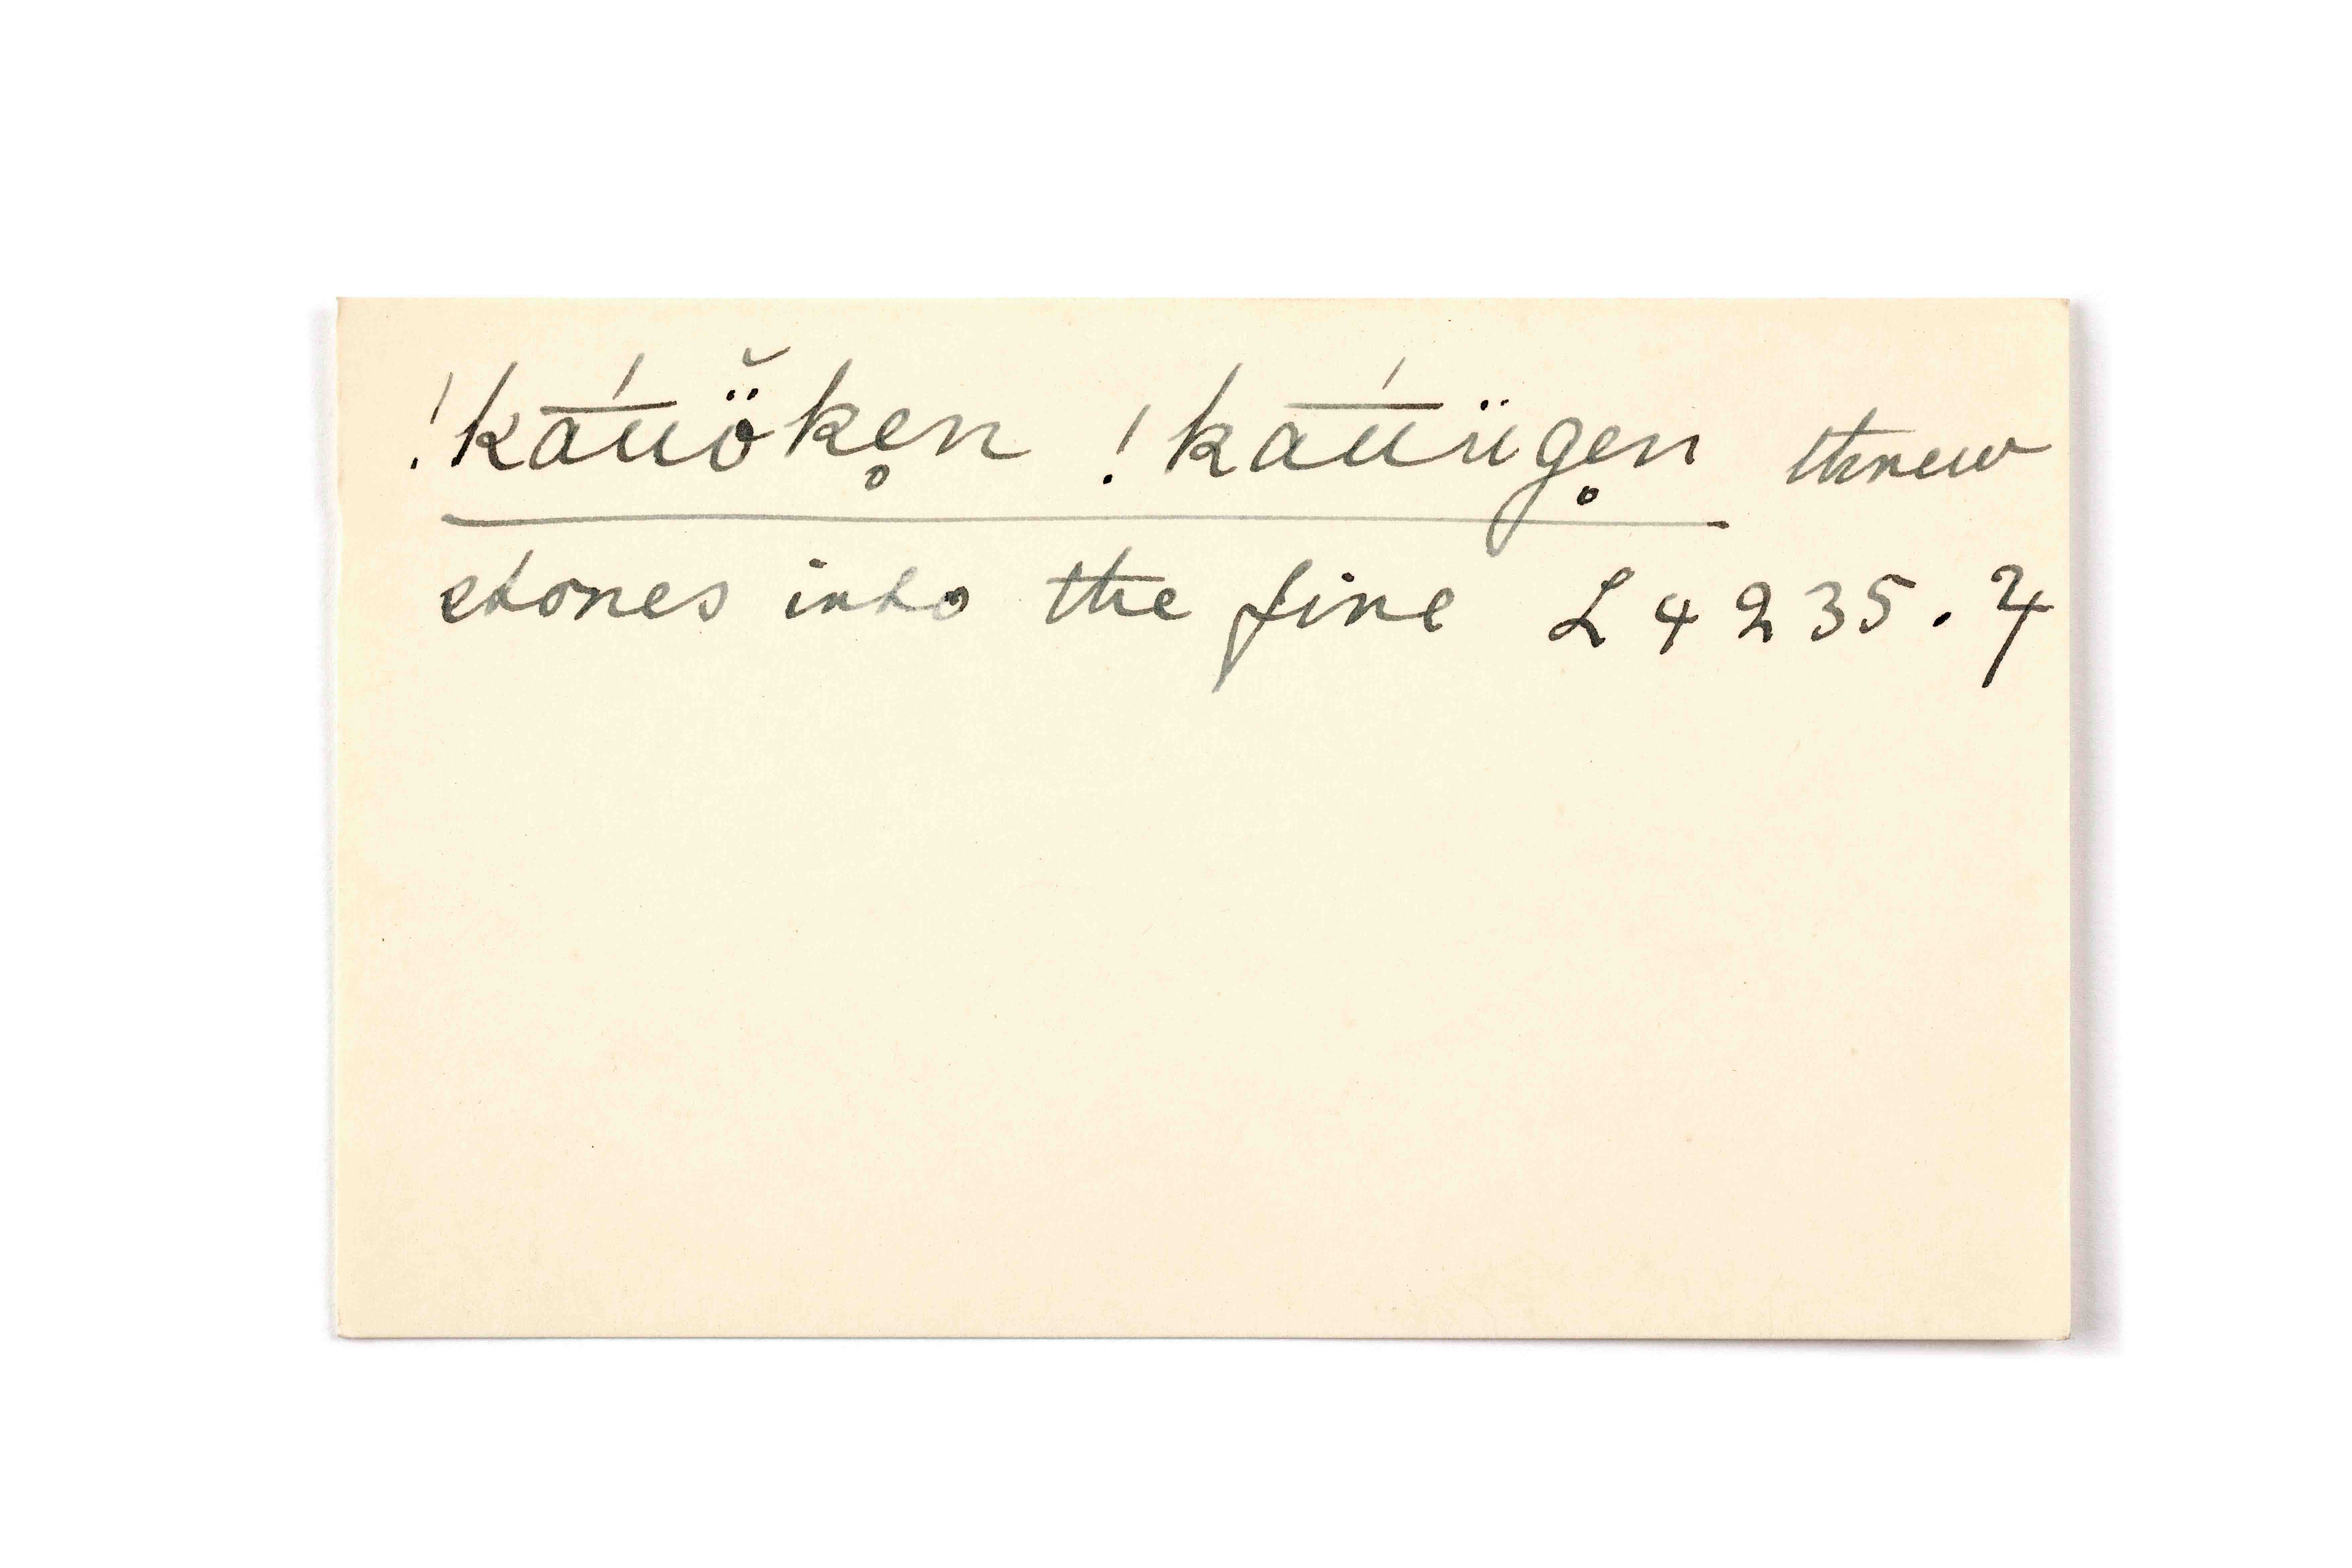 !kā́úö̆ke̥n !kā́úüge̥n threw
stones into the fire L 4235.7